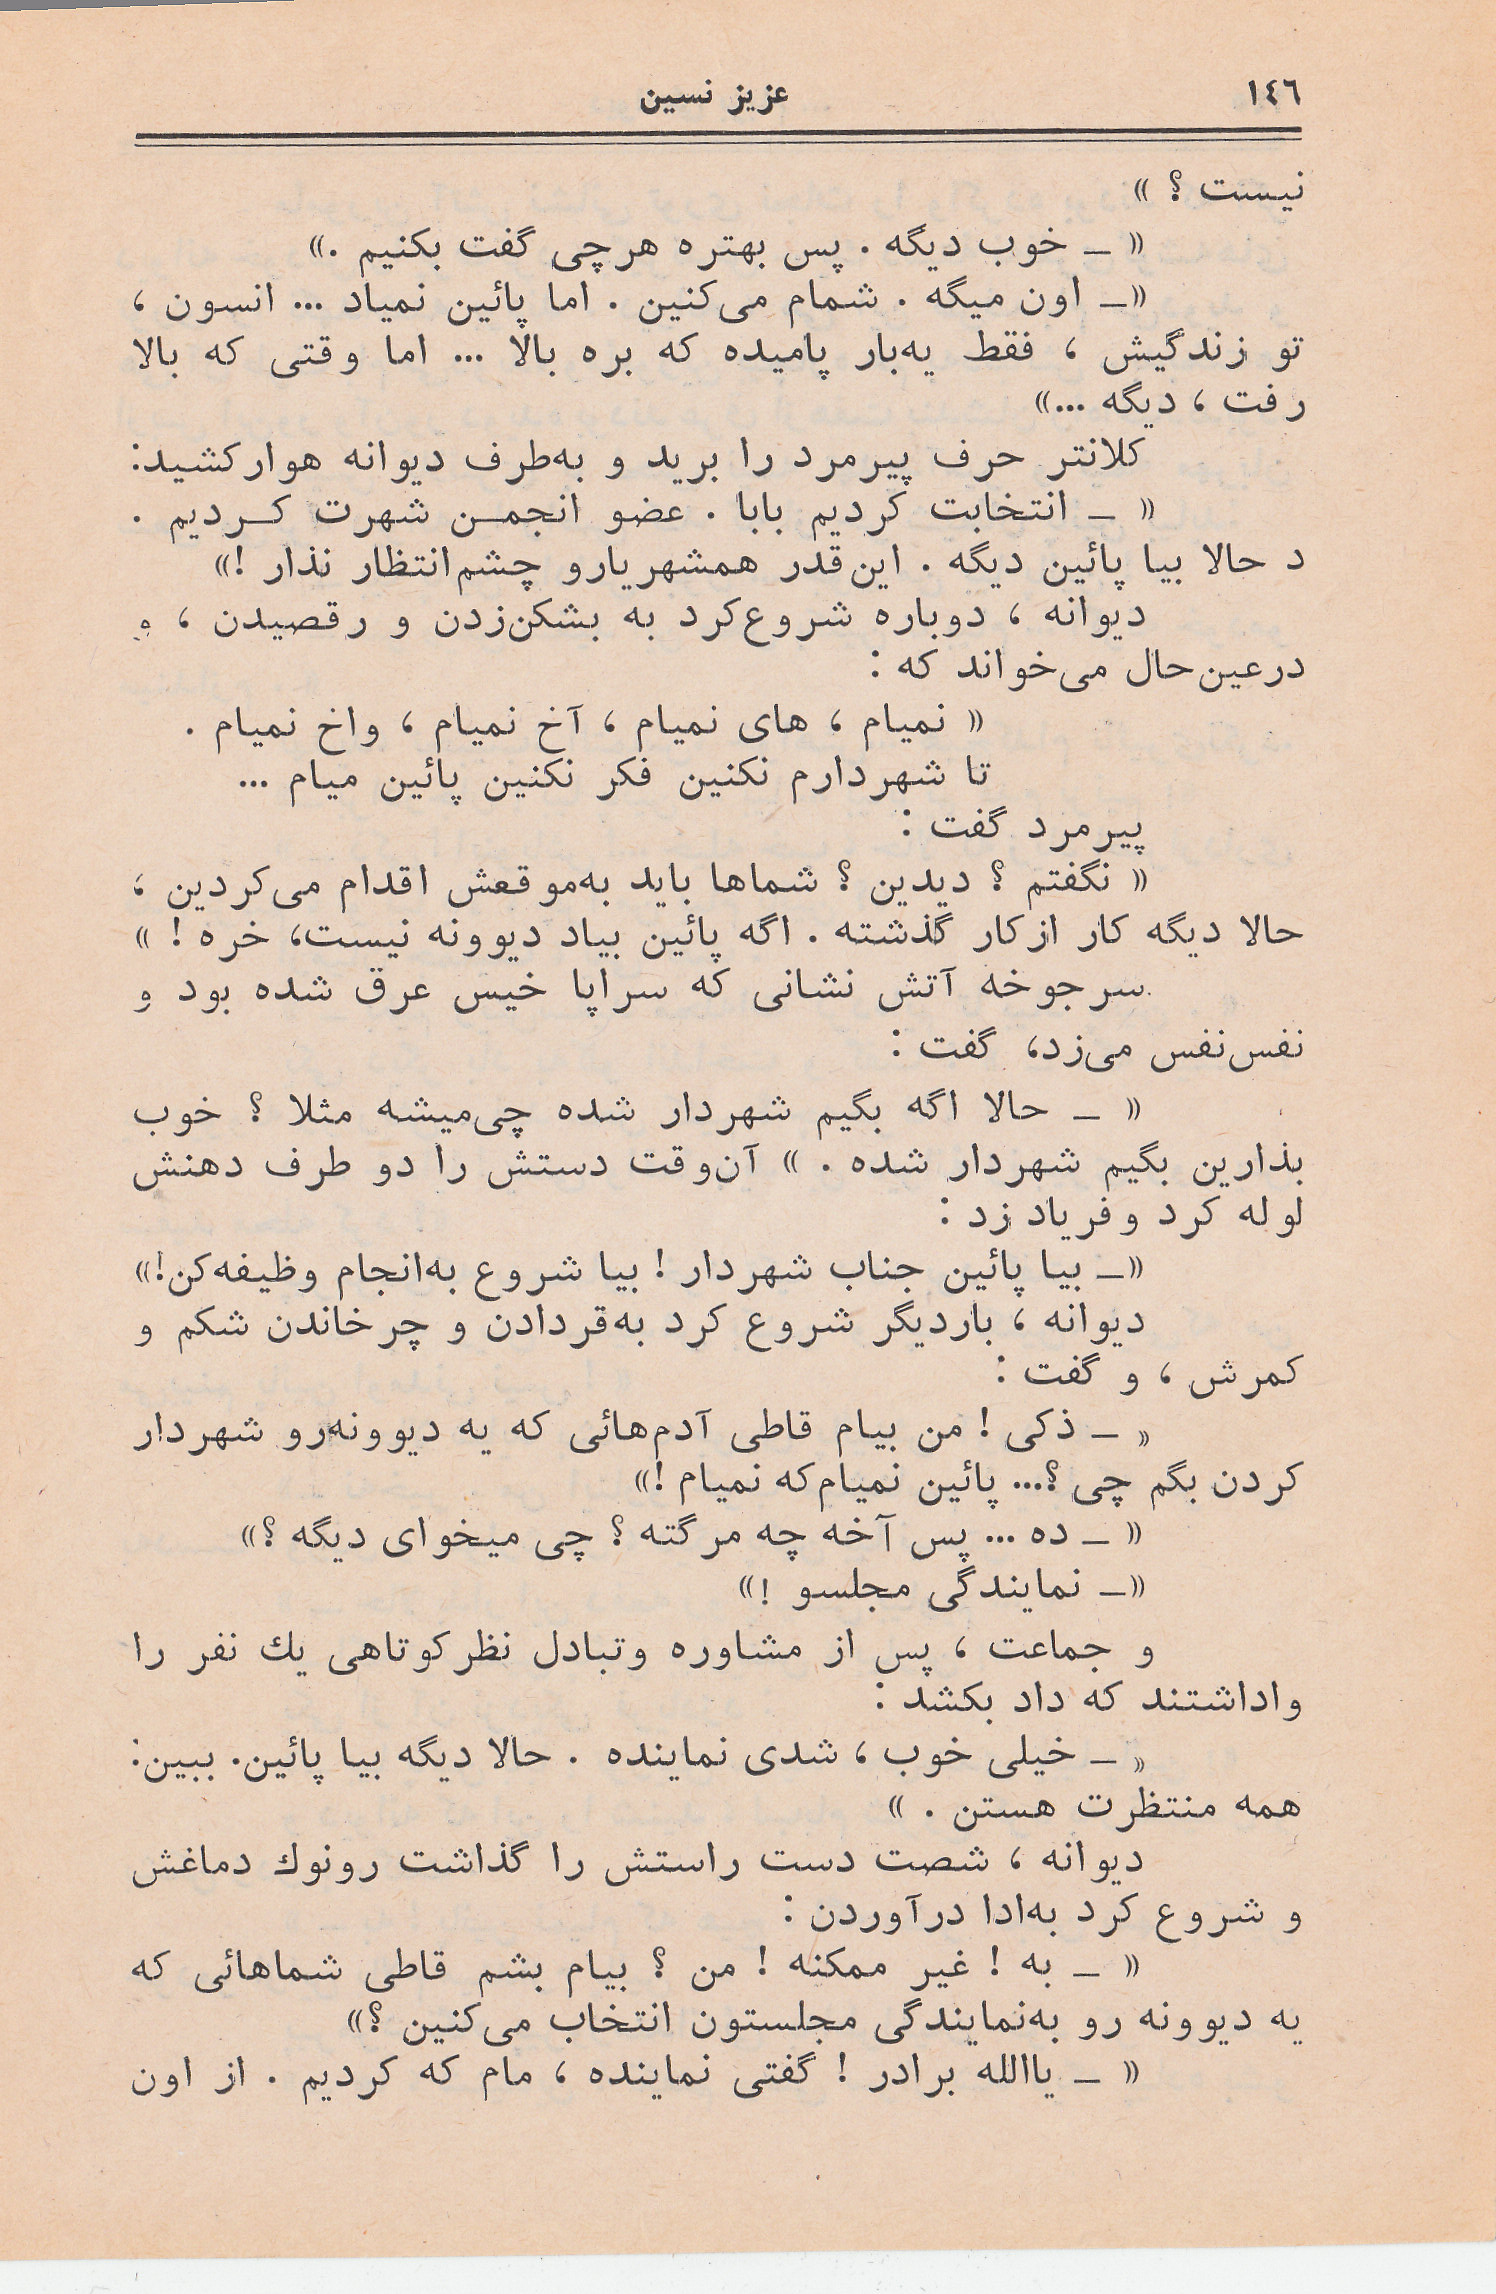 ١٤٦
عزیز نسین
نیست ؟ »
« ــ خوب دیگه . پس بهتره هرچی گفت بکنیم .»
«ــ اون میگه . شمام می‌کنین . اما پائین نمیاد ... انسون ،
تو زندگیش ، فقط یه‌بار پامیده که بره بالا ... اما وقتی که بالا
رفت ، دیگه ...»
کلانتر حرف پیرمرد را برید و به‌طرف دیوانه هوارکشید:
« ــ انتخابت کردیم بابا . عضو انجمـن شهرت کـردیم .
د حالا بیا پائین دیگه . این‌قدر همشهریارو چشم‌انتظار نذار !»
دیوانه ، دوباره شروع‌کرد به بشکن‌زدن و رقصیدن ، و
درعین‌حال می‌خواند که :
« نمیام ، های نمیام ، آخ نمیام ، واخ نمیام .
تا شهردارم نکنین فکر نکنین پائین میام ...
پیرمرد گفت :
« نگفتم ؟ دیدین ؟ شماها باید به‌موقعش اقدام می‌کردین ،
حالا دیگه کار ازکار گذشته . اگه پائین بیاد دیوونه نیست، خره ! »
سرجوخه آتش نشانی که سراپا خیس عرق شده بود و
نفس‌نفس می‌زد، گفت :
« ــ حالا اگه بگیم شهردار شده چی‌میشه مثلا ؟ خوب
بذارین بگیم شهردار شده . » آن‌وقت دستش را دو طرف دهنش
لوله کرد وفریاد زد :
«ــ بیا پائین جناب شهردار ! بیا شروع به‌انجام وظیفه‌کن!»
دیوانه ، باردیگر شروع کرد به‌قردادن و چرخاندن شکم و
کمرش ، و گفت :
« ــ ذکی ! من بیام قاطی آدم‌هائی که یه دیوونه‌رو شهردار
کردن بگم چی ؟... پائین نمیام‌که نمیام !»
« ــ ده ... پس آخه چه مرگته ؟ چی میخوای دیگه ؟»
«ــ نمایندگی مجلسو !»
و جماعت ، پس از مشاوره وتبادل نظرکوتاهی یك نفر را
واداشتند که داد بکشد :
« ــ خیلی خوب ، شدی نماینده . حالا دیگه بیا پائین. ببین:
همه منتظرت هستن . »
دیوانه ، شصت دست راستش را گذاشت رونوك دماغش
و شروع کرد به‌ادا درآوردن :
« ــ به ! غیر ممکنه ! من ؟ بیام بشم قاطی شماهائی که
یه دیوونه رو به‌نمایندگی مجلستون انتخاب می‌کنین ؟»
« ــ یاالله برادر ! گفتی نماینده ، مام که کردیم . از اون